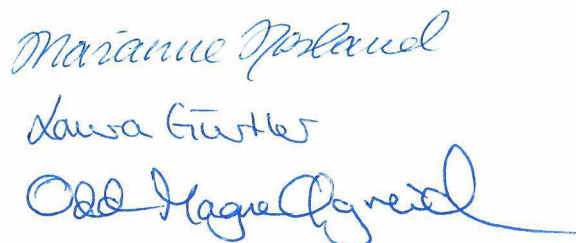 Marianne Røsland
Laura Gürtler
Odd Magne Øgreid